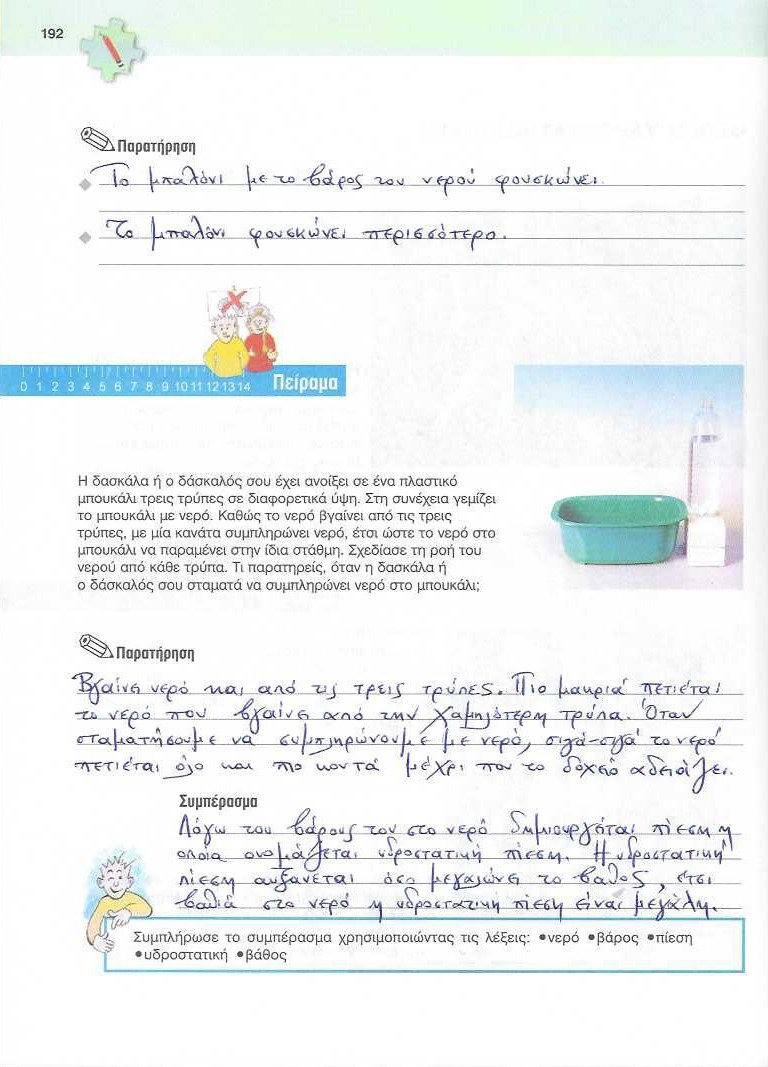 192
Παρατήρηση
Το μπαλόνι με το βάρος του νερού φουσκώνει.
Το μπαλόνι φουσκώνει περισσότερο.
0 1 2 3 4 5 6 7 8 9 10 11 12 13 14 Πείραμα
Η δασκάλα ή ο δάσκαλός σου έχει ανοίξει σε ένα πλαστικό
μπουκάλι τρεις τρύπες σε διαφορετικά ύψη. Στη συνέχεια γεμίζει
το μπουκάλι με νερό. Καθώς το νερό βγαίνει από τις τρεις
τρύπες, με μία κανάτα συμπληρώνει νερό, έτσι ώστε το νερό στο
μπουκάλι να παραμένει στην ίδια στάθμη. Σχεδίασε τη ροή του
νερού από κάθε τρύπα. Τι παρατηρείς, όταν η δασκάλα ή
ο δάσκαλός σου σταματά να συμπληρώνει νερό στο μπουκάλι;
Παρατήρηση
Βγαίνει νερό και από τις τρεις τρύπες. Πιο μακριά πετιέται
το νερό που βγαίνει από την χαμηλότερη τρύπα. Όταν
σταματήσουμε να συμπληρώνουμε με νερό, σιγά-σιγά το νερό
πετιέται όλο και πιο κοντά μέχρι που το δοχείο αδειάζει.
Συμπέρασμα
Λόγω του βάρους του στο νερό δημιουργείται πίεση η
οποία ονομάζεται υδροστατική πίεση. Η υδροστατική
πίεση αυξάνεται όσο μεγαλώνει το βάθος, έτσι
βαθιά στο νερό η υδροστατική πίεση είναι μεγάλη.
Συμπλήρωσε το συμπέρασμα χρησιμοποιώντας τις λέξεις: •νερό •βάρος •πίεση
•υδροστατική •βάθος